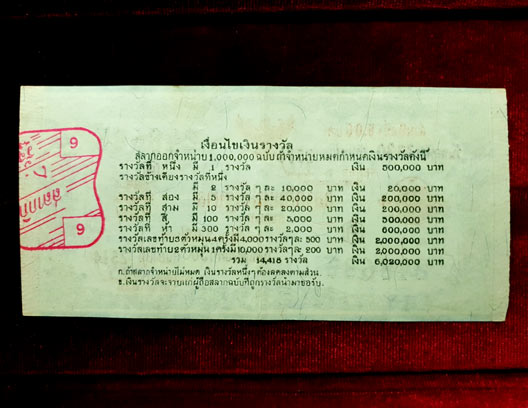 เงื่อนไขเงินรางวัล
สลากออกจำหน่าย 1,000,000 ฉบับ ถ้าจำหน่ายหมดกำหนดเงินรางวัลดังนี้
รางวัลที่ หนึ่ง มี 1 รางวัล เงิน 500,000 บาท
รางวัลข้างเคียงรางวัลที่หนึ่ง
มี 2 รางวัล ๆ ละ 10,000 บาท เงิน 20,000 บาท
รางวัลที่ สอง มี 5 รางวัล ๆ ละ 40,000 บาท เงิน 200,000 บาท
รางวัลที่ สาม มี 10 รางวัล ๆ ละ 20,000 บาท เงิน 200,000 บาท
รางวัลที่ สี่ มี 100 รางวัล ๆ ละ 5,000 บาท เงิน 500,000 บาท
รางวัลที่ ห้า มี 300 รางวัล ๆ ละ 2,000 บาท เงิน 600,000 บาท
รางวัลเลขท้าย 3 ตัวหมุน 4 ครั้งมี 4,000 รางวัลๆ ละ 500 บาท เงิน 2,000,000 บาท
รางวัลเลขท้าย 2 ตัวหมุน 1 ครั้งมี 10,000 รางวัลๆ ละ 200 บาท เงิน 2,000,000 บาท
รวม 14,418 รางวัล เงิน 6,020,000 บาท
ก. ถ้าสลากจำหน่ายไม่หมด เงินรางวัลหนึ่งๆ ต้องลดลงตามส่วน.
ข. เงินรางวัลจะจ่ายแก่ผู้ถือสลากฉบับที่ถูกรางวัลนำมาขอรับ.
9
9